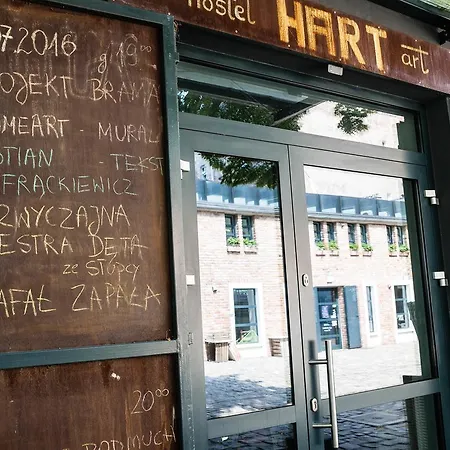 hostel HART art
7.2016 g 19⁰⁰
ROJEKT BRAMA
MEART - MURAL
TIAN - TEKST
FRĄCKIEWICZ
ZWYCZAJNA
ESTRA DĘTA
ze Słupcy
AFAŁ ZAPAŁA
20⁰⁰